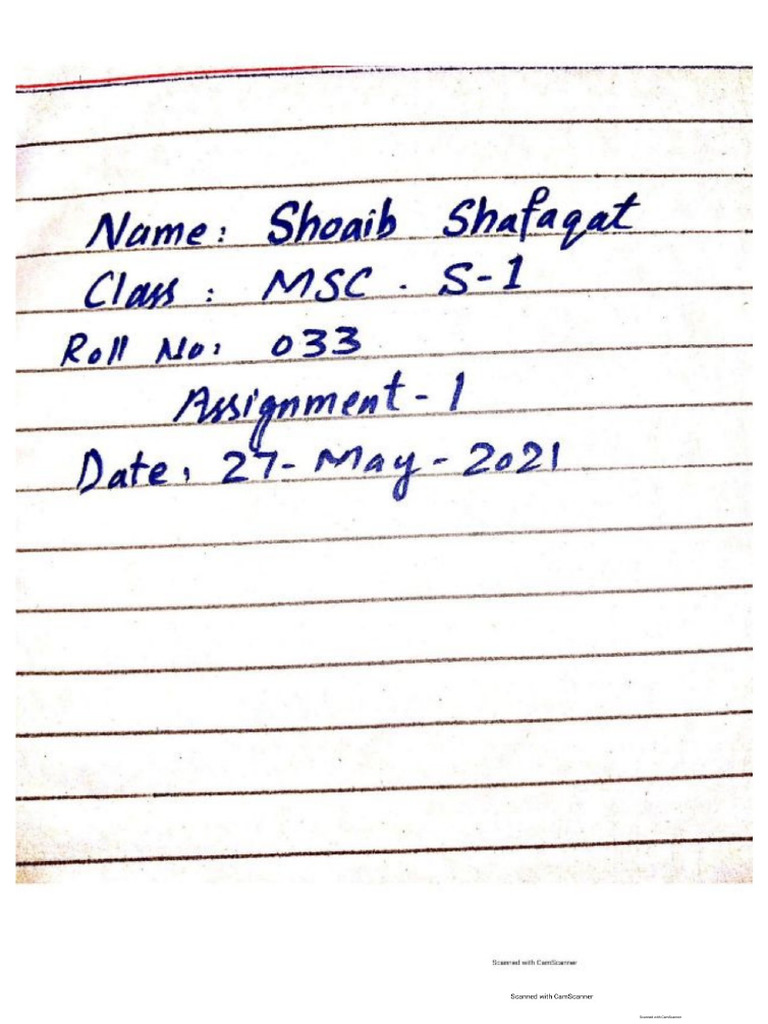 Name: Shoaib Shafaqat
Class: MSC - S-1
Roll No: 033
Assignment - 1
Date: 27-May-2021
Scanned with CamScanner
Scanned with CamScanner
Scanned with CamScanner